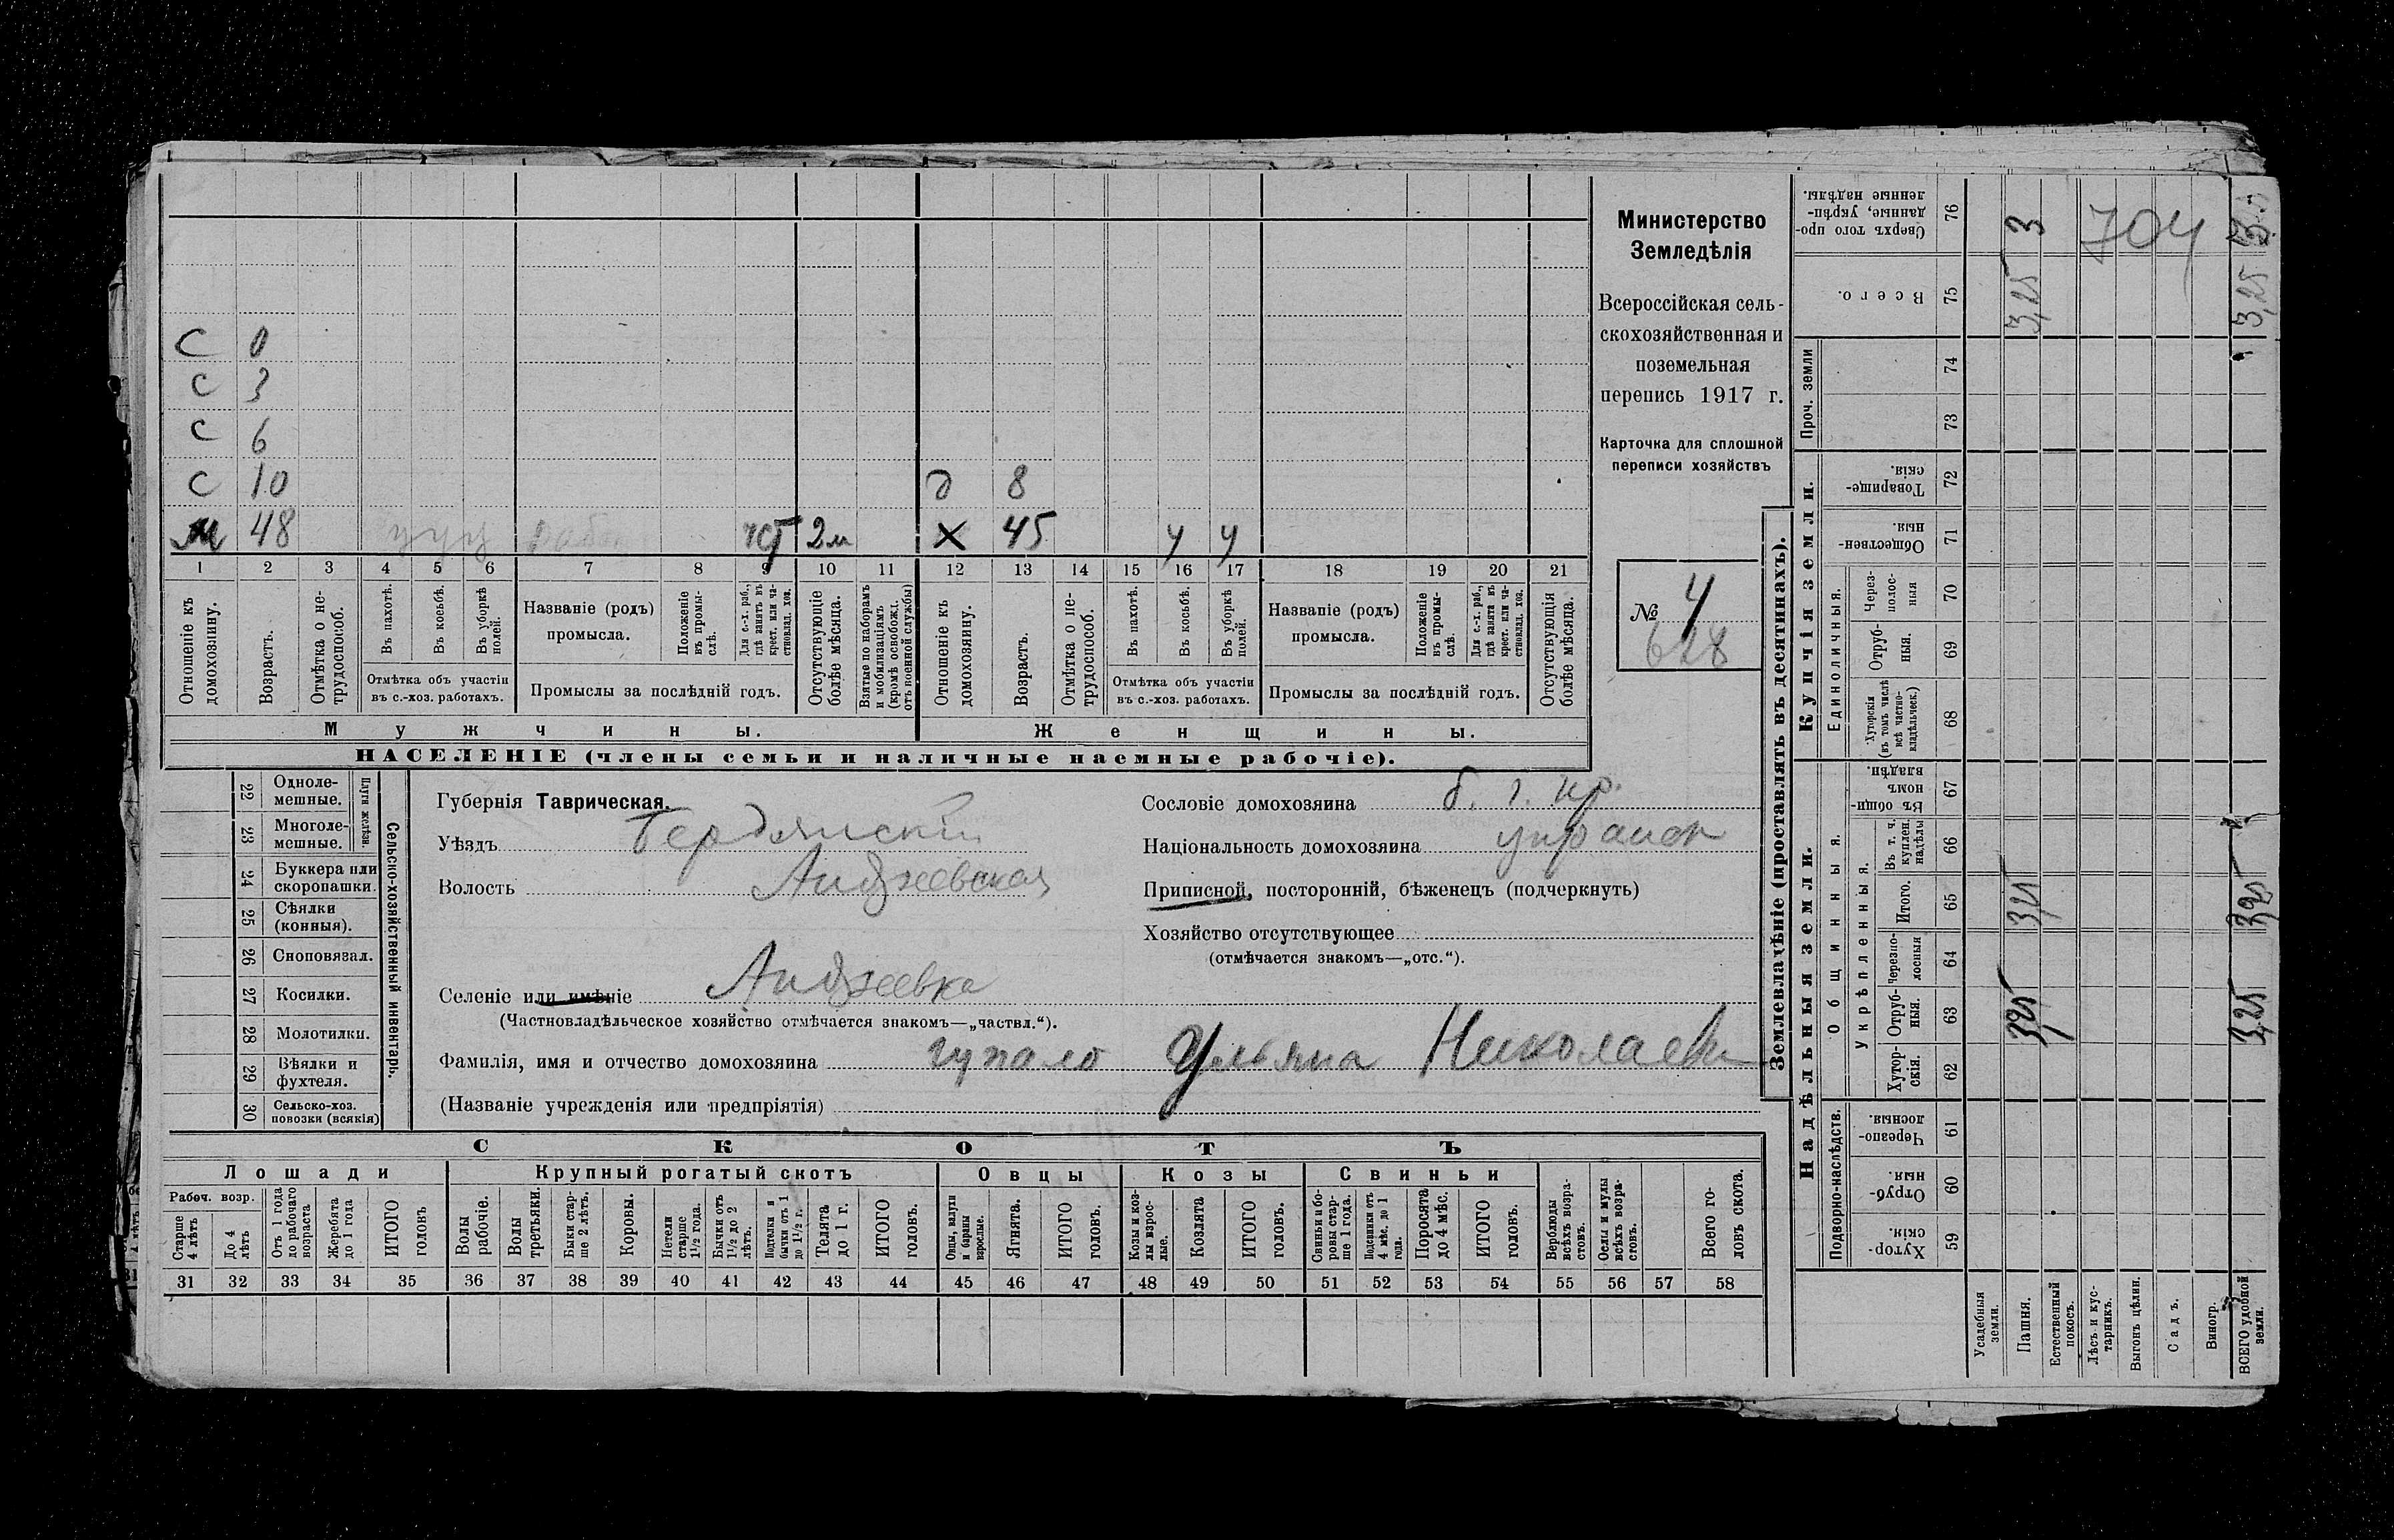 С 0
С 3
С 6
С 10 д 8
м 48 2м х 45 у у
1 2 3 4 5 6 7 8 9 10 11 12 13 14 15 16 17 18 19 20 21
Отношеніе къ домохозяину.
Возрастъ.
Отмѣтка о нетрудоспособ.
Въ пахотѣ.
Въ косьбѣ.
Въ уборкѣ полей.
Отмѣтка объ участіи въ с.-хоз. работахъ.
Названіе (родъ) промысла.
Положеніе въ промыслѣ.
Для с.-х. раб., гдѣ занятъ въ крест. или частновлад. хоз.
Промыслы за послѣдній годъ.
Отсутствующіе болѣе мѣсяца.
Взятые по наборамъ и мобилизаціямъ (кромѣ освобожд. отъ военной службы)
Отношеніе къ домохозяину.
Возрастъ.
Отмѣтка о нетрудоспособ.
Въ пахотѣ.
Въ косьбѣ.
Въ уборкѣ полей.
Отмѣтка объ участіи въ с.-хоз. работахъ.
Названіе (родъ) промысла.
Положеніе въ промыслѣ.
Для с.-х. раб., гдѣ занята въ крест. или частновлад. хоз.
Промыслы за послѣдній годъ.
Отсутствующія болѣе мѣсяца.
Мужчины. Женщины.
НАСЕЛЕНІЕ (члены семьи и наличные наемные рабочіе).
Министерство
Земледѣлія
Всероссійская сель-
скохозяйственная и
поземельная
перепись 1917 г.
Карточка для сплошной
переписи хозяйствъ
№ 4
628
22 Одноле-
мешные.
23 Многоле-
мешные.
Плуги желѣзн.
24 Буккера или
скоропашки.
25 Сѣялки
(конныя).
26 Сноповязал.
27 Косилки.
28 Молотилки.
29 Вѣялки и
фухтеля.
30 Сельско-хоз.
повозки (всякія)
Сельско-хозяйственный инвентарь.
Губернія Таврическая.
Уѣздъ Бердянскій
Волость Андреевская
Селеніе или имѣніе Андреевка
(Частновладѣльческое хозяйство отмѣчается знакомъ—„частвл.“).
Фамилія, имя и отчество домохозяина Гупало Ульяна Николаев
(Названіе учрежденія или предпріятія)
Сословіе домохозяина б. г. кр.
Національность домохозяина
Приписной, посторонній, бѣженецъ (подчеркнуть)
Хозяйство отсутствующее
(отмѣчается знакомъ—„отс.“).
СКОТЪ
Лошади Крупный рогатый скотъ Овцы Козы Свиньи
Рабоч. возр.
Старше 4 лѣтъ
До 4 лѣтъ
Отъ 1 года до рабочаго возраста
Жеребята до 1 года
ИТОГО головъ
Волы рабочіе.
Волы третьяки.
Быки старше 2 лѣтъ.
Коровы.
Нетели старше 1½ года.
Бычки отъ 1½ до 2 лѣтъ.
Подтелки и бычки отъ 1 до 1½ г.
Телята до 1 г.
ИТОГО головъ.
Овцы, валухи и бараны взрослые.
Ягнята.
ИТОГО головъ.
Козы и козлы взрослые.
Козлята
ИТОГО головъ.
Свиньи и боровы старше 1 года.
Подсвинки отъ 4 мѣс. до 1 года.
Поросята до 4 мѣс.
ИТОГО головъ.
Верблюды всѣхъ возрастовъ.
Ослы и мулы всѣхъ возрастовъ.
Всего головъ скота.
31 32 33 34 35 36 37 38 39 40 41 42 43 44 45 46 47 48 49 50 51 52 53 54 55 56 57 58
Землевладѣніе (проставлять въ десятинахъ).
Сверхъ того проданные, укрѣпленные надѣлы. 76 3 704
Всего. 75 3,25 3,25
Проч. земли 74
73
Купчія земли.
Товарищескія. 72
Общественныя. 71
Единоличныя.
Черезполосныя 70
Отрубныя. 69
Хуторскія (въ томъ числѣ всѣ частновладѣльческ.) 68
Надѣльныя земли.
Общинныя.
Въ общинномъ владѣн. 67
Укрѣпленныя.
Въ т. ч. куплен. надѣлы 66
Итого. 65 3,25 3,25
Черезполосныя 64
Отрубныя. 63 3,25 3,25
Хуторскія. 62
Подворно-наслѣдств.
Черезполосныя. 61
Отрубныя. 60
Хуторскія. 59
Усадебныя земли.
Пашня.
Естественный покосъ.
Лѣсъ и кустарникъ.
Выгонъ цѣлин.
Садъ.
Виногр.
ВСЕГО удобной земли.